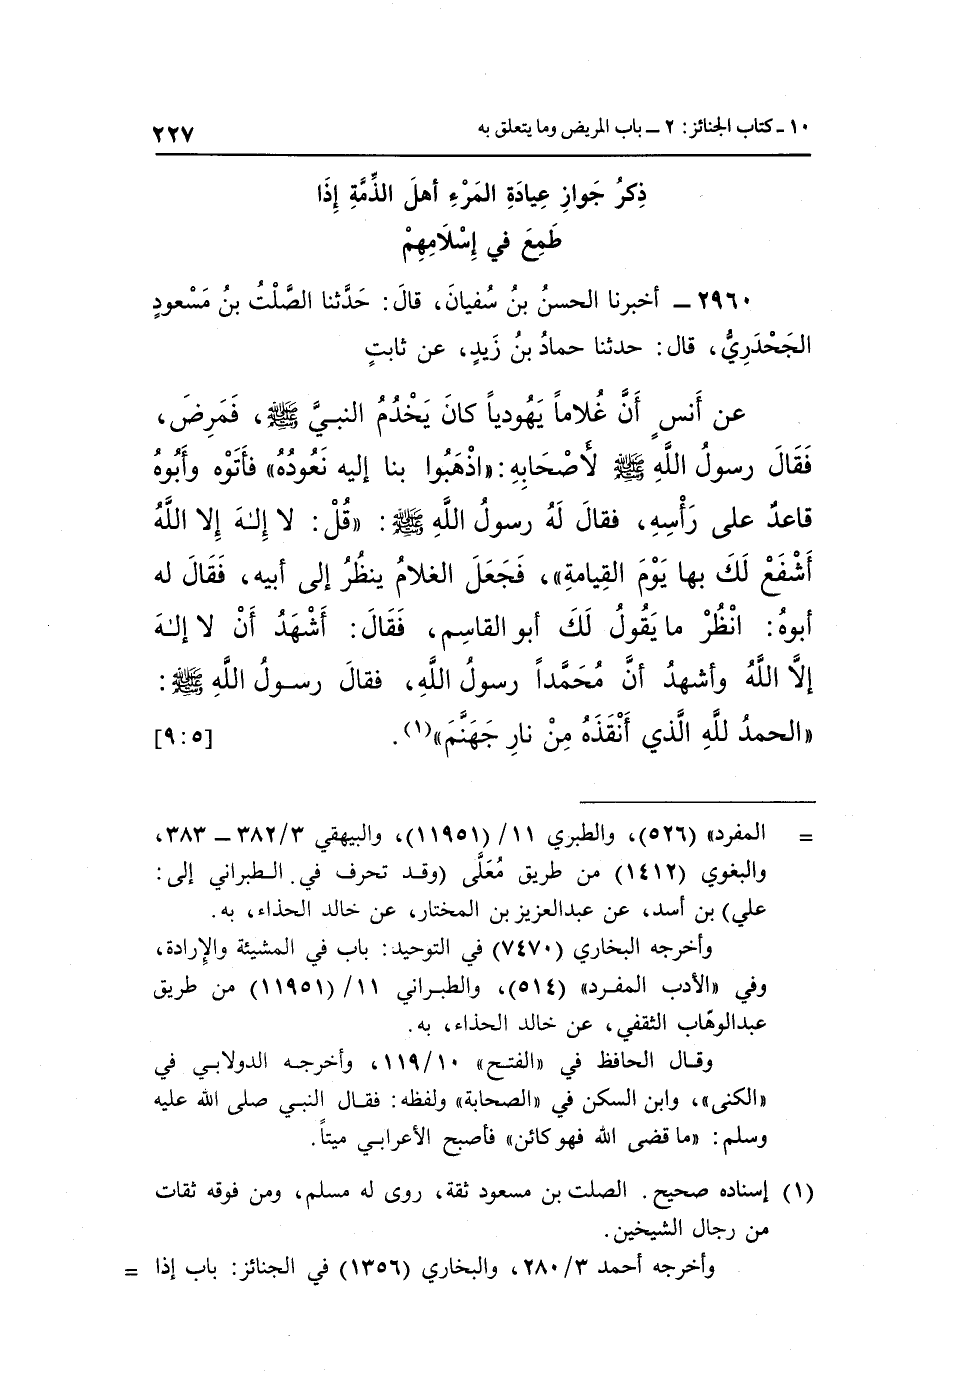 ١٠ ـ كتاب الجنائز: ٢ ــ باب المريض وما يتعلق به ٢٢٧
ذِكرُ جَوازِ عِيادَةِ المَرْءِ أهلَ الذِّمَّةِ إِذَا
طَمِعَ في إِسْلَامِهِمْ
٢٩٦٠ ــ أخبرنا الحسنُ بنُ سُفيانَ، قالَ: حَدَّثنا الصَّلْتُ بنُ مَسْعودٍ
الجَحْدَرِيُّ، قال: حدثنا حمادُ بنُ زَيدٍ، عن ثابتٍ
عن أَنسٍ أَنَّ غُلاماً يَهُودياً كانَ يَخْدُمُ النبيَّ ﷺ، فَمَرِضَ،
فَقَالَ رسولُ اللَّهِ ﷺ لأَصْحَابِهِ: «اذْهَبُوا بنا إليه نَعُودُهُ» فأَتَوْه وأَبُوهُ
قاعدٌ على رَأْسِهِ، فقالَ لَهُ رسولُ اللَّهِ ﷺ: «قُلْ: لا إِلهَ إِلا اللَّهُ
أَشْفَعْ لَكَ بها يَوْمَ القِيامةِ»، فَجَعَلَ الغلامُ ينظُرُ إلى أبيه، فَقَالَ له
أبوهُ: انْظُرْ ما يَقُولُ لَكَ أبو القاسِم، فَقَالَ: أَشْهَدُ أَنْ لا إلهَ
إلَّا اللَّهُ وأشهدُ أنَّ مُحَمَّداً رسولُ اللَّهِ، فقالَ رسولُ اللَّهِ ﷺ:
«الحمدُ للَّهِ الَّذي أَنْقَذَهُ مِنْ نارِ جَهَنَّمَ»(١). [٩:٥]
= المفرد» (٥٢٦)، والطبري ١١/ (١١٩٥١)، والبيهقي ٣٨٢/٣ ــ ٣٨٣،
والبغوي (١٤١٢) من طريق مُعَلَّى (وقد تحرف في الطبراني إلى:
علي) بن أسد، عن عبدالعزيز بن المختار، عن خالد الحذاء، به.
وأخرجه البخاري (٧٤٧٠) في التوحيد: باب في المشيئة والإرادة،
وفي «الأدب المفرد» (٥١٤)، والطبراني ١١/ (١١٩٥١) من طريق
عبدالوهّاب الثقفي، عن خالد الحذاء، به.
وقال الحافظ في «الفتح» ١١٩/١٠، وأخرجه الدولابي في
«الكنى»، وابن السكن في «الصحابة» ولفظه: فقال النبي صلى الله عليه
وسلم: «ما قضى الله فهو كائن» فأصبح الأعرابي ميتاً.
(١) إسناده صحيح. الصلت بن مسعود ثقة، روى له مسلم، ومن فوقه ثقات
من رجال الشيخين.
وأخرجه أحمد ٢٨٠/٣، والبخاري (١٣٥٦) في الجنائز: باب إذا =